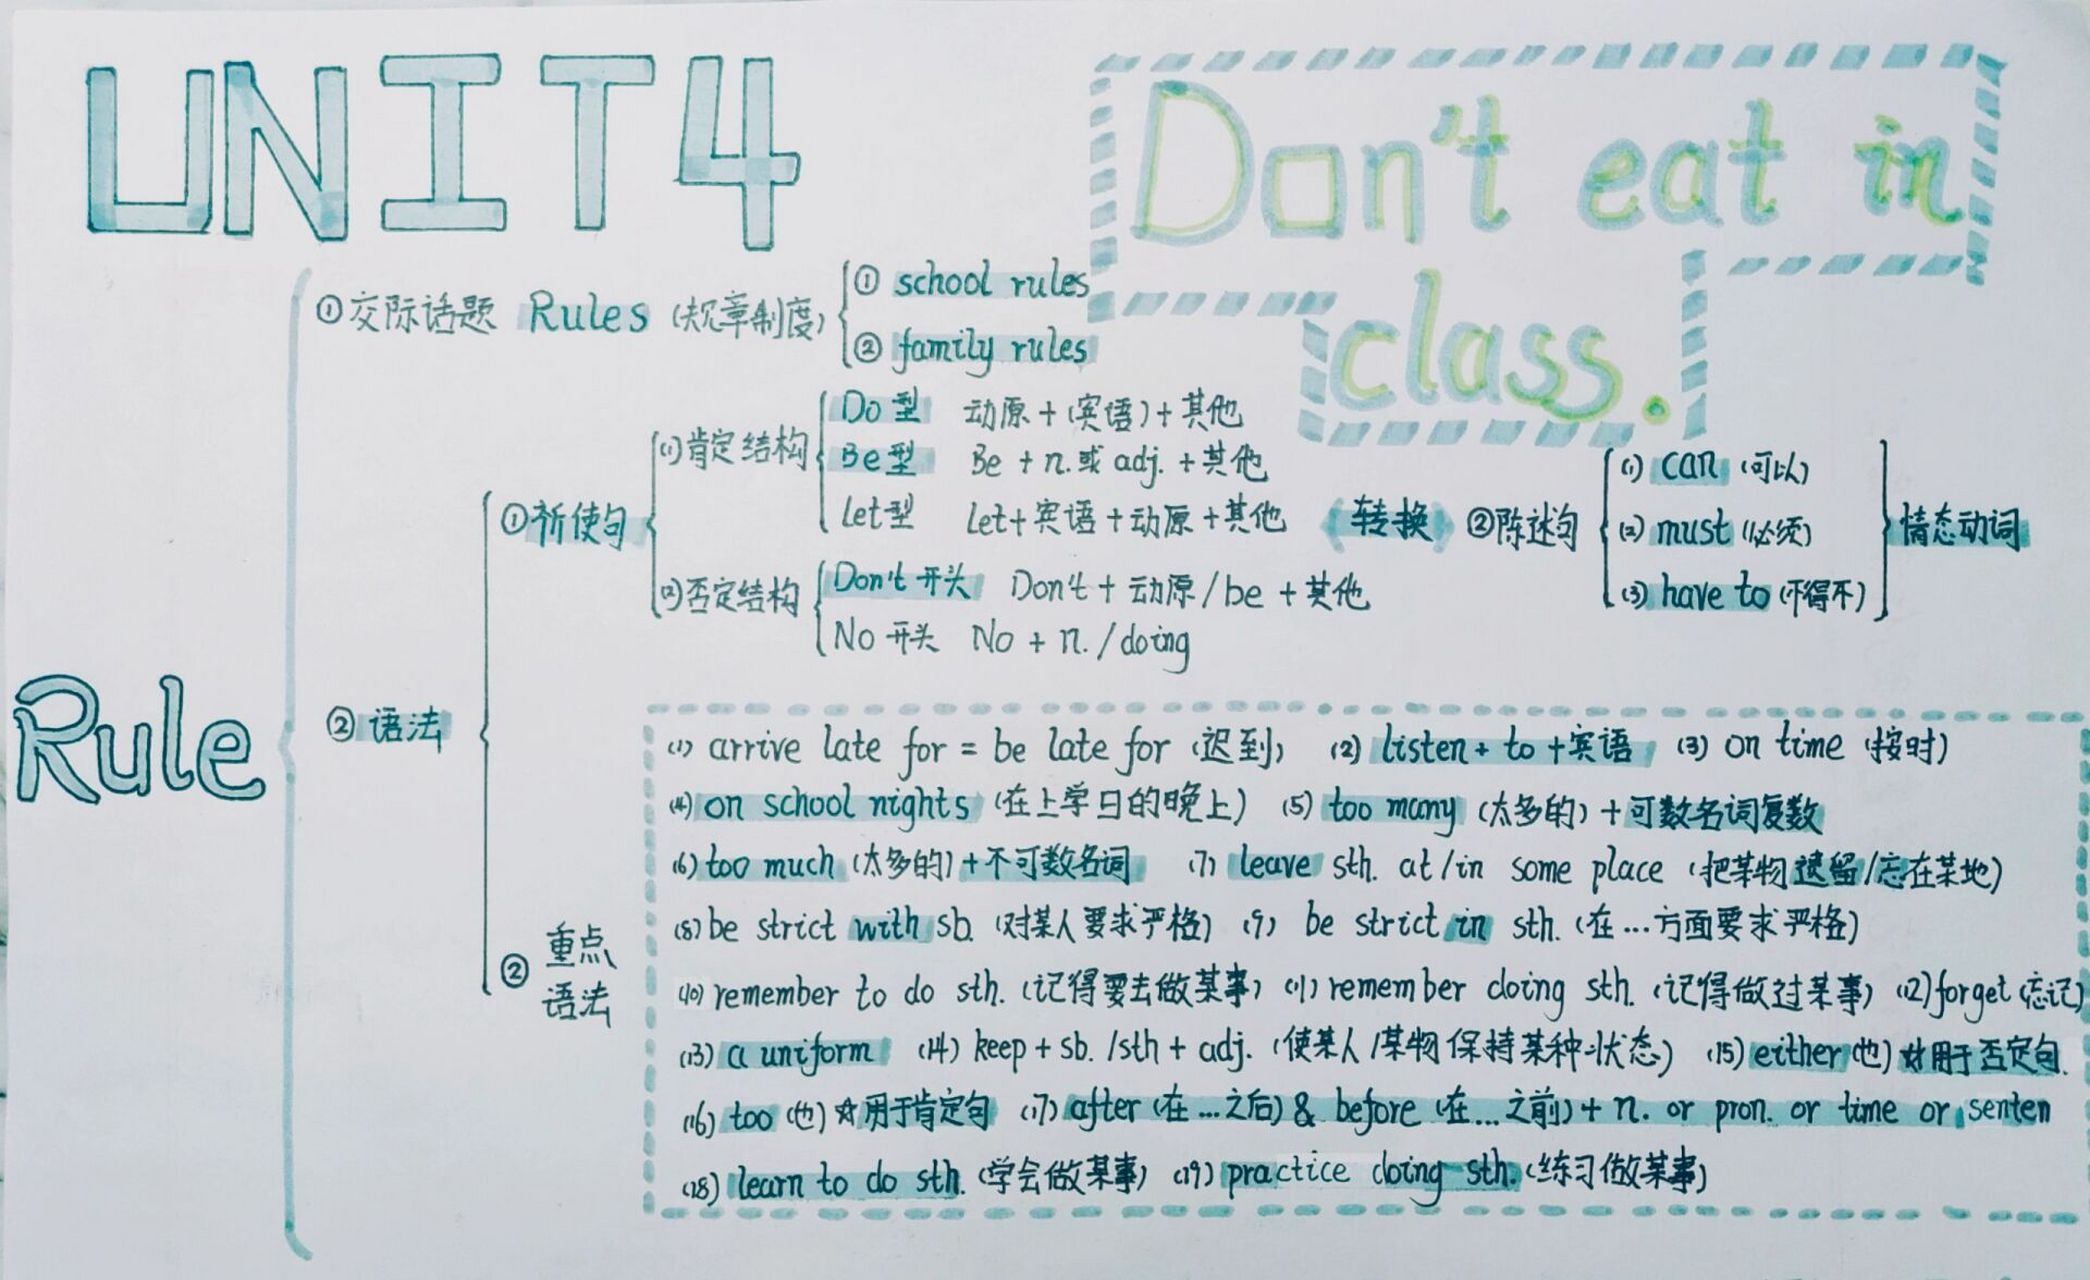 UNIT4
Don't eat in
class.
Rule
①交际话题 Rules (规章制度)
① school rules
② family rules
②语法
①祈使句
(1)肯定结构
Do型 动原+(宾语)+其他
Be型 Be + n.或 adj. +其他
Let型 Let+宾语+动原+其他
(2)否定结构
Don't 开头 Don't + 动原/be +其他
No 开头 No + n./doing
转换
②陈述句
(1) can (可以)
(2) must (必须)
(3) have to (不得不)
情态动词
② 重点
语法
(1) arrive late for = be late for (迟到) (2) listen + to +宾语 (3) on time (按时)
(4) on school nights (在上学日的晚上) (5) too many (太多的) +可数名词复数
(6) too much (太多的) +不可数名词 (7) leave sth. at/in some place (把某物遗留/忘在某地)
(8) be strict with sb. (对某人要求严格) (9) be strict in sth. (在…方面要求严格)
(10) remember to do sth. (记得要去做某事) (11) remember doing sth. (记得做过某事) (12) forget (忘记)
(13) a uniform (14) keep + sb. /sth + adj. (使某人/某物保持某种状态) (15) either (也) ☆用于否定句.
(16) too (也) ☆用于肯定句 (17) after (在…之后) & before (在…之前) + n. or pron. or time or senten
(18) learn to do sth. (学会做某事) (19) practice doing sth. (练习做某事)